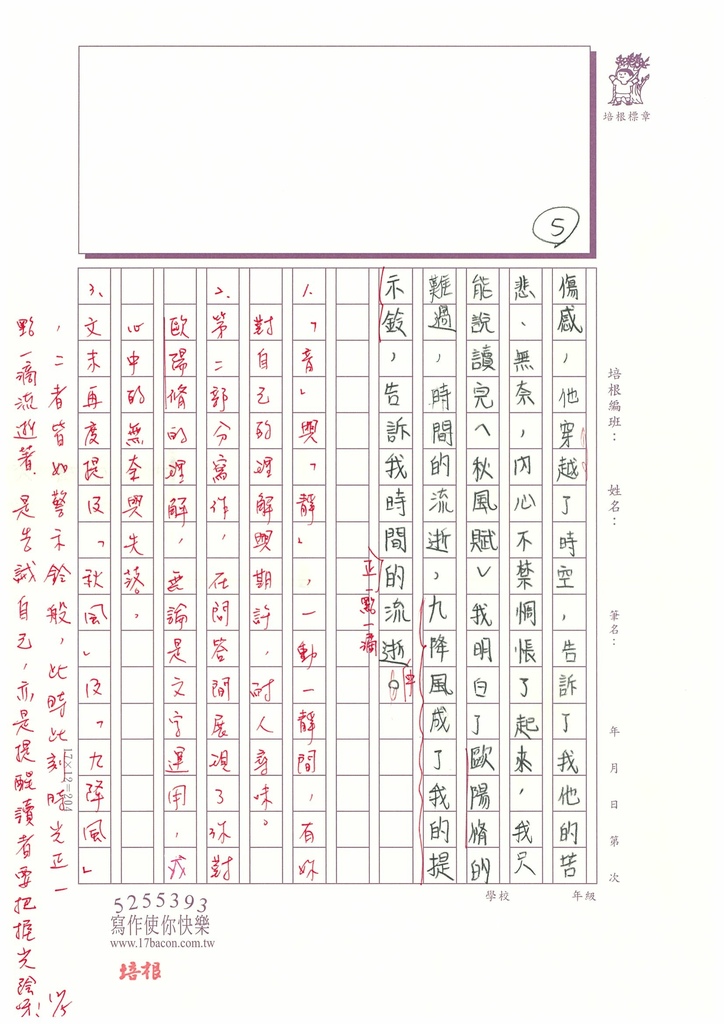 培根標章
5
培根編班：
姓名：
筆名：
年 月 日 第 次
學校 年級
傷感，他穿越了時空，告訴了我他的苦
悲、無奈，內心不禁惆悵了起來，我只
能說讀完〈秋風賦〉我明白了歐陽脩的
難過，時間的流逝，九降風成了我的提
示鈴，告訴我時間的流逝。
正一點一滴
中
1.「音」與「靜」，一動一靜間，有妳
對自己的理解與期許，耐人尋味。
2.第二部分寫作，在問答間展現了妳對
歐陽脩的理解，無論是文字運用，或
心中的無奈與失落。
3.文末再度提及「秋風」及「九降風」
，二者皆如警示鈴般，此時此刻時光正一
點一滴流逝著，是告誡自己，亦是提醒讀者要把握光陰呀！
17×12=204
5255393
寫作使你快樂
www.17bacon.com.tw
培根